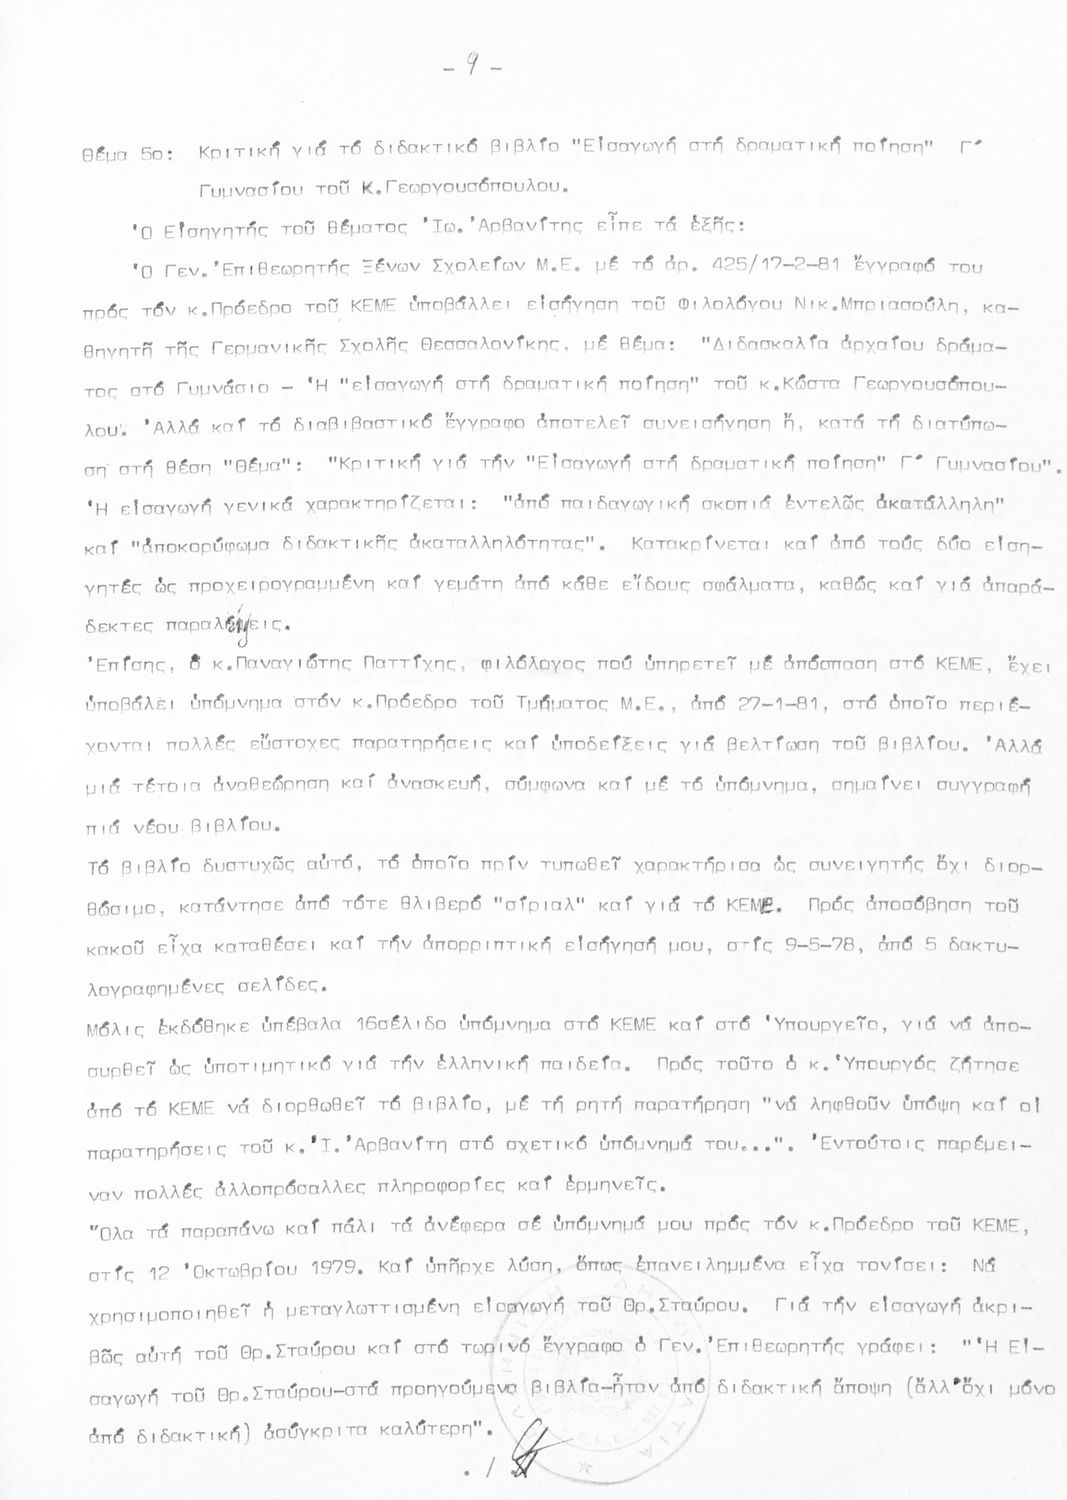 - 9 -
θέμα 5ο: Κριτική γιά τό διδακτικό βιβλίο "Εἰσαγωγή στή δραματική ποίηση" Γ´
Γυμνασίου τοῦ Κ.Γεωργουσόπουλου.
Ὁ Εἰσηγητής τοῦ θέματος Ἰω.Ἀρβανίτης εἶπε τά ἑξῆς:
Ὁ Γεν.Ἐπιθεωρητής Ξένων Σχολείων Μ.Ε. μέ τό ἀρ. 425/17-2-81 ἔγγραφό του
πρός τόν κ.Πρόεδρο τοῦ ΚΕΜΕ ὑποβάλλει εἰσήγηση τοῦ Φιλολόγου Νικ.Μπριασούλη, κα-
θηγητῆ τῆς Γερμανικῆς Σχολῆς Θεσσαλονίκης, μέ θέμα: "Διδασκαλία ἀρχαίου δράμα-
τος στό Γυμνάσιο - Ἡ "εἰσαγωγή στή δραματική ποίηση" τοῦ κ.Κώστα Γεωργουσόπου-
λου. Ἀλλά καί τό διαβιβαστικό ἔγγραφο ἀποτελεῖ συνεισήγηση ἤ, κατά τή διατύπω-
ση στή θέση "θέμα": "Κριτική γιά τήν "Εἰσαγωγή στή δραματική ποίηση" Γ´ Γυμνασίου".
Ἡ εἰσαγωγή γενικά χαρακτηρίζεται: "ἀπό παιδαγωγική σκοπιά ἐντελῶς ἀκατάλληλη"
καί "ἀποκορύφωμα διδακτικῆς ἀκαταλληλότητας". Κατακρίνεται καί ἀπό τούς δύο εἰση-
γητές ὡς προχειρογραμμένη καί γεμάτη ἀπό κάθε εἴδους σφάλματα, καθώς καί γιά ἀπαρά-
δεκτες παραλήψεις.
Ἐπίσης, ὁ κ.Παναγιώτης Παττίχης, φιλόλογος πού ὑπηρετεῖ μέ ἀπόσπαση στό ΚΕΜΕ, ἔχει
ὑποβάλει ὑπόμνημα στόν κ.Πρόεδρο τοῦ Τμήματος Μ.Ε., ἀπό 27-1-81, στό ὁποῖο περιέ-
χονται πολλές εὔστοχες παρατηρήσεις καί ὑποδείξεις γιά βελτίωση τοῦ βιβλίου. Ἀλλά
μιά τέτοια ἀναθεώρηση καί ἀνασκευή, σύμφωνα καί μέ τό ὑπόμνημα, σημαίνει συγγραφή
πιά νέου βιβλίου.
Τό βιβλίο δυστυχῶς αὐτό, τό ὁποῖο πρίν τυπωθεῖ χαρακτήρισα ὡς συνειγητής ὄχι διορ-
θώσιμο, κατάντησε ἀπό τότε θλιβερό "σίριαλ" καί γιά τό ΚΕΜΕ. Πρός ἀποσόβηση τοῦ
κακοῦ εἶχα καταθέσει καί τήν ἀπορριπτική εἰσήγησή μου, στίς 9-5-78, ἀπό 5 δακτυ-
λογραφημένες σελίδες.
Μόλις ἐκδόθηκε ὑπέβαλα 16σέλιδο ὑπόμνημα στό ΚΕΜΕ καί στό Ὑπουργεῖο, γιά νά ἀπο-
συρθεῖ ὡς ὑποτιμητικό γιά τήν ἑλληνική παιδεία. Πρός τοῦτο ὁ κ.Ὑπουργός ζήτησε
ἀπό τό ΚΕΜΕ νά διορθωθεῖ τό βιβλίο, μέ τή ρητή παρατήρηση "νά ληφθοῦν ὑπόψη καί οἱ
παρατηρήσεις τοῦ κ.Ἰ.Ἀρβανίτη στό σχετικό ὑπόμνημά του...". Ἐντούτοις παρέμει-
ναν πολλές ἀλλοπρόσαλλες πληροφορίες καί ἑρμηνεῖς.
Ὅλα τά παραπάνω καί πάλι τά ἀνέφερα σέ ὑπόμνημά μου πρός τόν κ.Πρόεδρο τοῦ ΚΕΜΕ,
στίς 12 Ὀκτωβρίου 1979. Καί ὑπῆρχε λύση, ὅπως ἐπανειλημμένα εἶχα τονίσει: Νά
χρησιμοποιηθεῖ ἡ μεταγλωττισμένη εἰσαγωγή τοῦ Θρ.Σταύρου. Γιά τήν εἰσαγωγή ἀκρι-
βῶς αὐτή τοῦ Θρ.Σταύρου καί στό τωρινό ἔγγραφο ὁ Γεν.Ἐπιθεωρητής γράφει: "Ἡ Εἰ-
σαγωγή τοῦ Θρ.Σταύρου-στά προηγούμενα βιβλία-ἦταν ἀπό διδακτική ἄποψη (ἄλλ'ὄχι μόνο
ἀπό διδακτική) ἀσύγκριτα καλύτερη".
./.